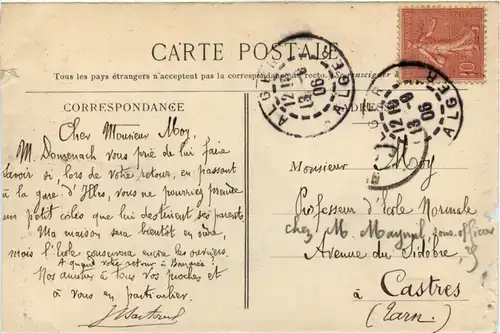 CARTE POSTALE
Tous les pays étrangers n'acceptent pas la correspondance au recto. se renseigner
CORRESPONDANCE
Cher Monsieur Moy,
M. Domenach vous prie de lui faire
savoir si lors de votre retour, en passant
à la gare d'Illes, vous ne pourriez prendre
un petit colis que lui destinent ses parents.
Ma maison sera bientôt en ordre
mais l'École conservera encore les ouvriers.
A quand votre retour à
Nos amitiés à tous vos proches et
à vous en particulier.
ALGER
12 10
13 - 8
06
ALGER
ALGER
12 10
13 - 8
06
10
Monsieur Moy
Professeur d'École Normale
chez M. sous-officier
Avenue du Sidobre
à Castres
(Tarn)